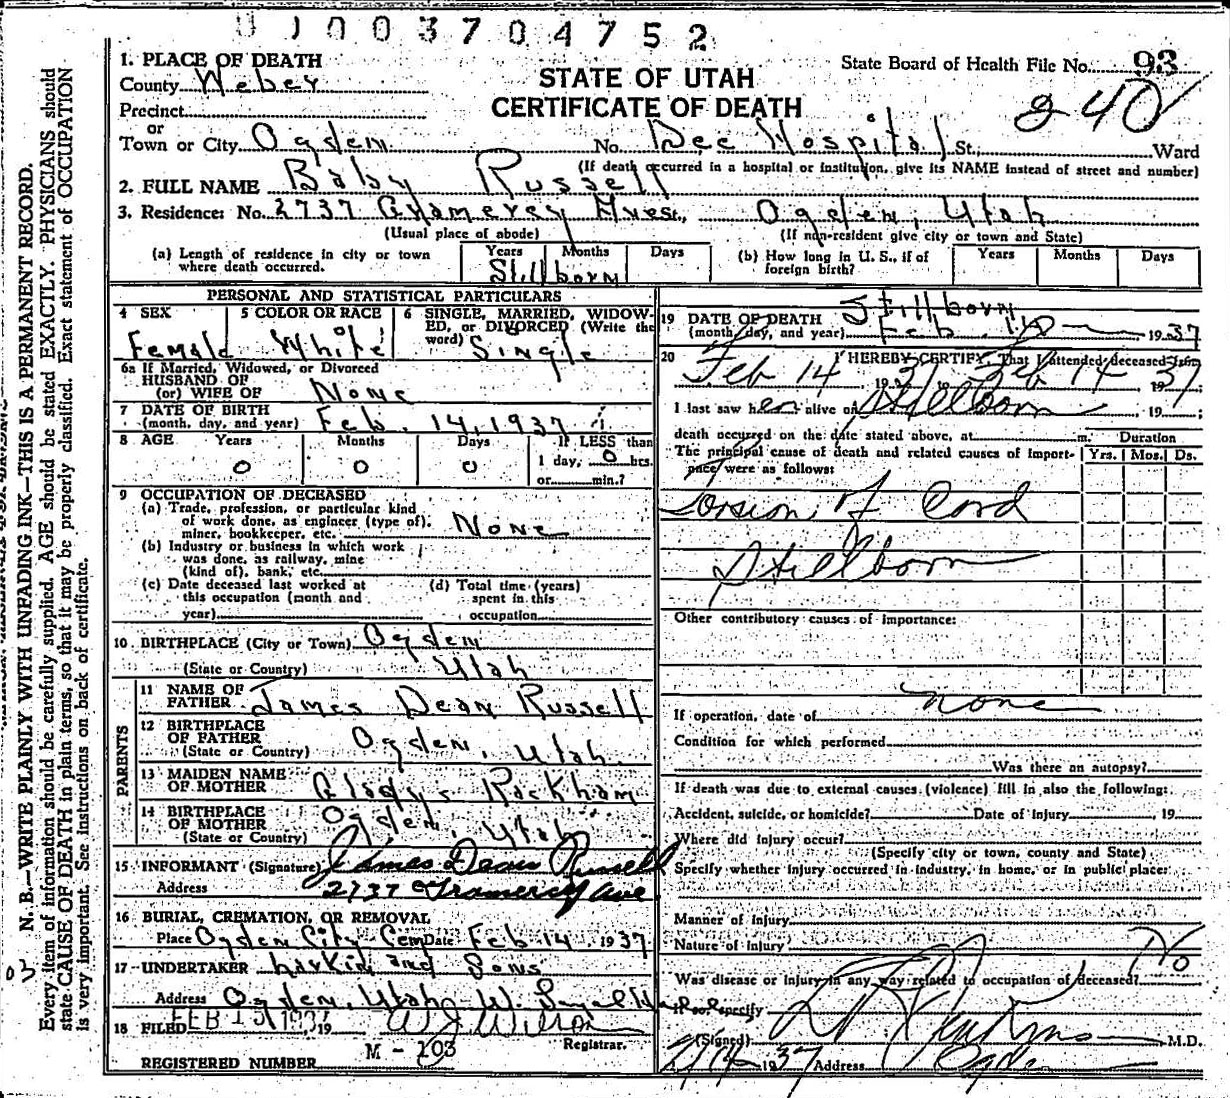 003704752
1. PLACE OF DEATH
County Weber
Precinct
or
Town or City Ogden
STATE OF UTAH
CERTIFICATE OF DEATH
State Board of Health File No. 93
240
No. Dee Hospital St. Ward
(If death occurred in a hospital or institution, give its NAME instead of street and number)
2. FULL NAME Baby Russell
3. Residence: No. 2737 Gramercy Ave St., Ogden, Utah
(Usual place of abode) (If non-resident give city or town and State)
(a) Length of residence in city or town where death occurred. Years Months Days
Stillborn
(b) How long in U. S., if of foreign birth? Years Months Days
PERSONAL AND STATISTICAL PARTICULARS
4 SEX 5 COLOR OR RACE 6 SINGLE, MARRIED, WIDOWED, or DIVORCED (Write the word)
Female White Single
6a If Married, Widowed, or Divorced
HUSBAND OF
(or) WIFE OF None
7 DATE OF BIRTH
(month, day, and year) Feb. 14, 1937
8 AGE Years Months Days If LESS than
0 0 0 1 day, 0 hrs.
or min.?
9 OCCUPATION OF DECEASED
(a) Trade, profession, or particular kind
of work done, as engineer (type of),
miner, bookkeeper, etc. None
(b) Industry or business in which work
was done, as railway, mine
(kind of), bank, etc.
(c) Date deceased last worked at
this occupation (month and
year)
(d) Total time (years)
spent in this
occupation
10 BIRTHPLACE (City or Town) Ogden
(State or Country) Utah
PARENTS
11 NAME OF
FATHER James Dean Russell
12 BIRTHPLACE
OF FATHER Ogden, Utah
(State or Country)
13 MAIDEN NAME
OF MOTHER Gladys Rackham
14 BIRTHPLACE
OF MOTHER Ogden, Utah
(State or Country)
15 INFORMANT (Signature) James Dean Russell
Address 2737 Gramercy Ave
16 BURIAL, CREMATION, OR REMOVAL
Place Ogden City Cem Date Feb 14, 1937
17 UNDERTAKER Larkin and Sons
Address Ogden, Utah
18 FILED FEB 15 1937, 19 W J Wilson
Registrar.
REGISTERED NUMBER M-103
19 DATE OF DEATH Stillborn
(month, day, and year) Feb. 1937
20 I HEREBY CERTIFY, That I attended deceased from
Feb 14 1937 Feb 14 1937
I last saw her alive on Stillborn, 19 ;
death occurred on the date stated above, at m.
The principal cause of death and related causes of importance were as follows:
Duration
Yrs. Mos. Ds.
Torsion of Cord
Stillborn
Other contributory causes of importance:
none
If operation, date of
Condition for which performed
Was there an autopsy?
If death was due to external causes (violence) fill in also the following:
Accident, suicide, or homicide? Date of Injury, 19
Where did injury occur?
(Specify city or town, county and State)
Specify whether injury occurred in industry, in home, or in public place:
Manner of Injury
Nature of injury
No
Was disease or injury in any way related to occupation of deceased?
If so, specify
(Signed) M.D.
1937 Address Ogden
N. B.—WRITE PLAINLY WITH UNFADING INK—THIS IS A PERMANENT RECORD.
Every item of information should be carefully supplied. AGE should be stated EXACTLY. PHYSICIANS should
state CAUSE OF DEATH in plain terms, so that it may be properly classified. Exact statement of OCCUPATION
is very important. See instructions on back of certificate.
03